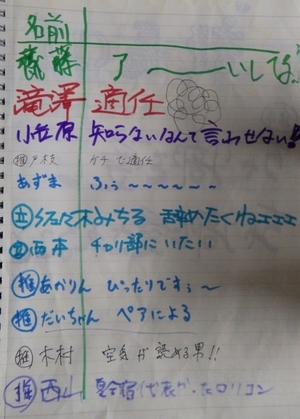 名前
齋藤 了〜〜いしな!!
滝澤 適任
小笠原 知らないなんて言わせない!!
推 戸枝 ケチで適任
あずま ふぅ〜〜〜〜〜〜
立 佐々木みちる 辞めたくねェェェ
立 西本 チリ部にいたい
推 あかりん ぴったりですぅ〜
推 だいちゃん ペアによる
推 木村 空気が読める男!!
推 西山 夏合宿代表だったロリコン